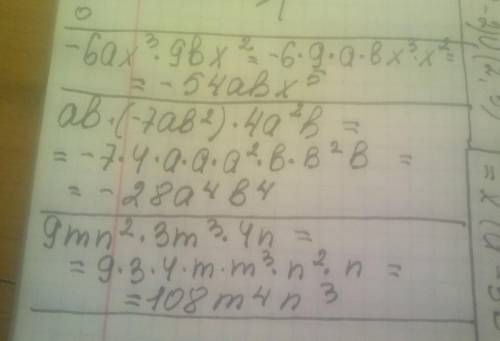 -6ax³·9bx²=-6·9·a·bx³·x²=
=-54abx⁵
ab·(-7ab²)·4a²b=
=-7·4·a·a·a²·b·b²b=
=-28a⁴b⁴
9mn²·3m³·4n=
=9·3·4·m·m³·n²·n=
=108m⁴n³